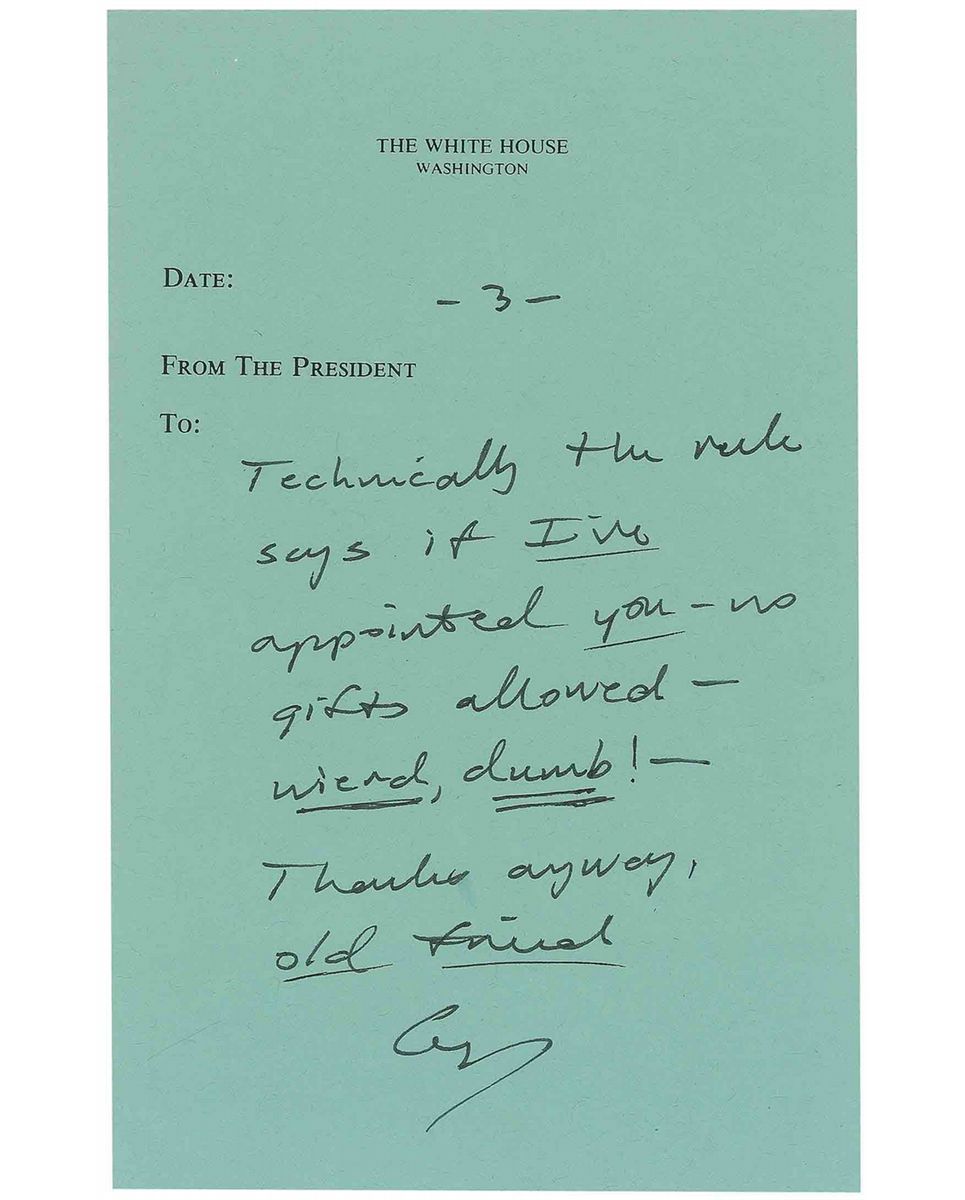 THE WHITE HOUSE
WASHINGTON
DATE:
- 3 -
FROM THE PRESIDENT
TO:
Technically the rule
says if I've
appointed you - no
gifts allowed -
wierd, dumb! -
Thanks anyway,
old friend